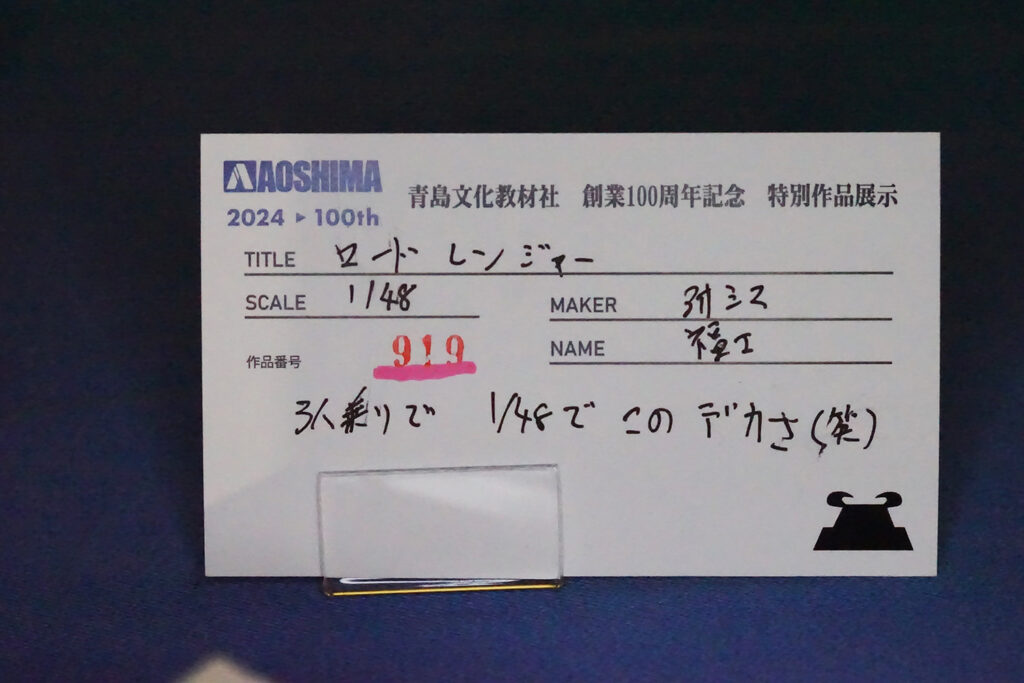 AOSHIMA
2024 ▸ 100th
青島文化教材社 創業100周年記念 特別作品展示
TITLE ロードレンジャー
SCALE 1/48
MAKER ミス
作品番号 919
NAME 工
3人乗りで 1/48で このデカさ(笑)